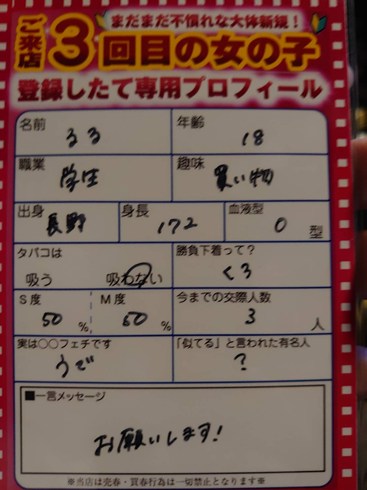 まだまだ不慣れな大体新規!
ご来店3回目の女の子
登録したて専用プロフィール
名前 るる 年齢 18
職業 学生 趣味 買い物
出身 長野 身長 172 血液型 O 型
タバコは 勝負下着って?
吸う 吸わない くろ
S度 M度 今までの交際人数
50% 50% 3人
実は○○フェチです 「似てる」と言われた有名人
うで ?
■一言メッセージ
お願いします!
※当店は売春・買春行為は一切禁止となります※